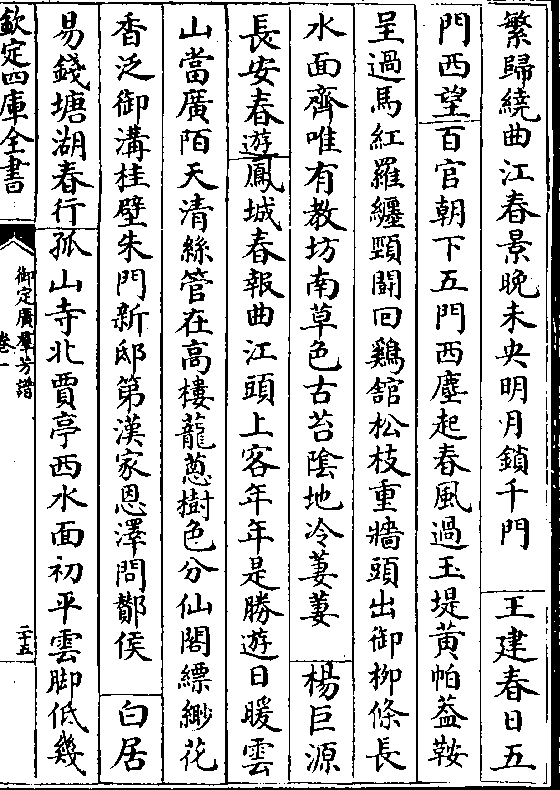 繁歸繞曲江春景晩未央明月鎖千門　王建春日五
門西望百官朝下五門西塵起春風過玉堤黄帕葢鞍
呈過馬紅羅纒頸鬬回鷄舘松枝重牆頭出御柳條長
水面齊唯有教坊南草色古苔隂地冷萋萋　楊巨源
長安春遊鳳城春報曲江頭上客年年是勝遊日暖雲
山當廣陌天清絲管在高樓蘢蔥樹色分仙閣縹緲花
香泛御溝桂壁朱門新邸第漢家恩澤問酇侯　白居
易錢塘湖春行孤山寺北賈亭西水面初平雲脚低幾
欽定四庫全書
御定廣羣芳譜
卷一
二十五